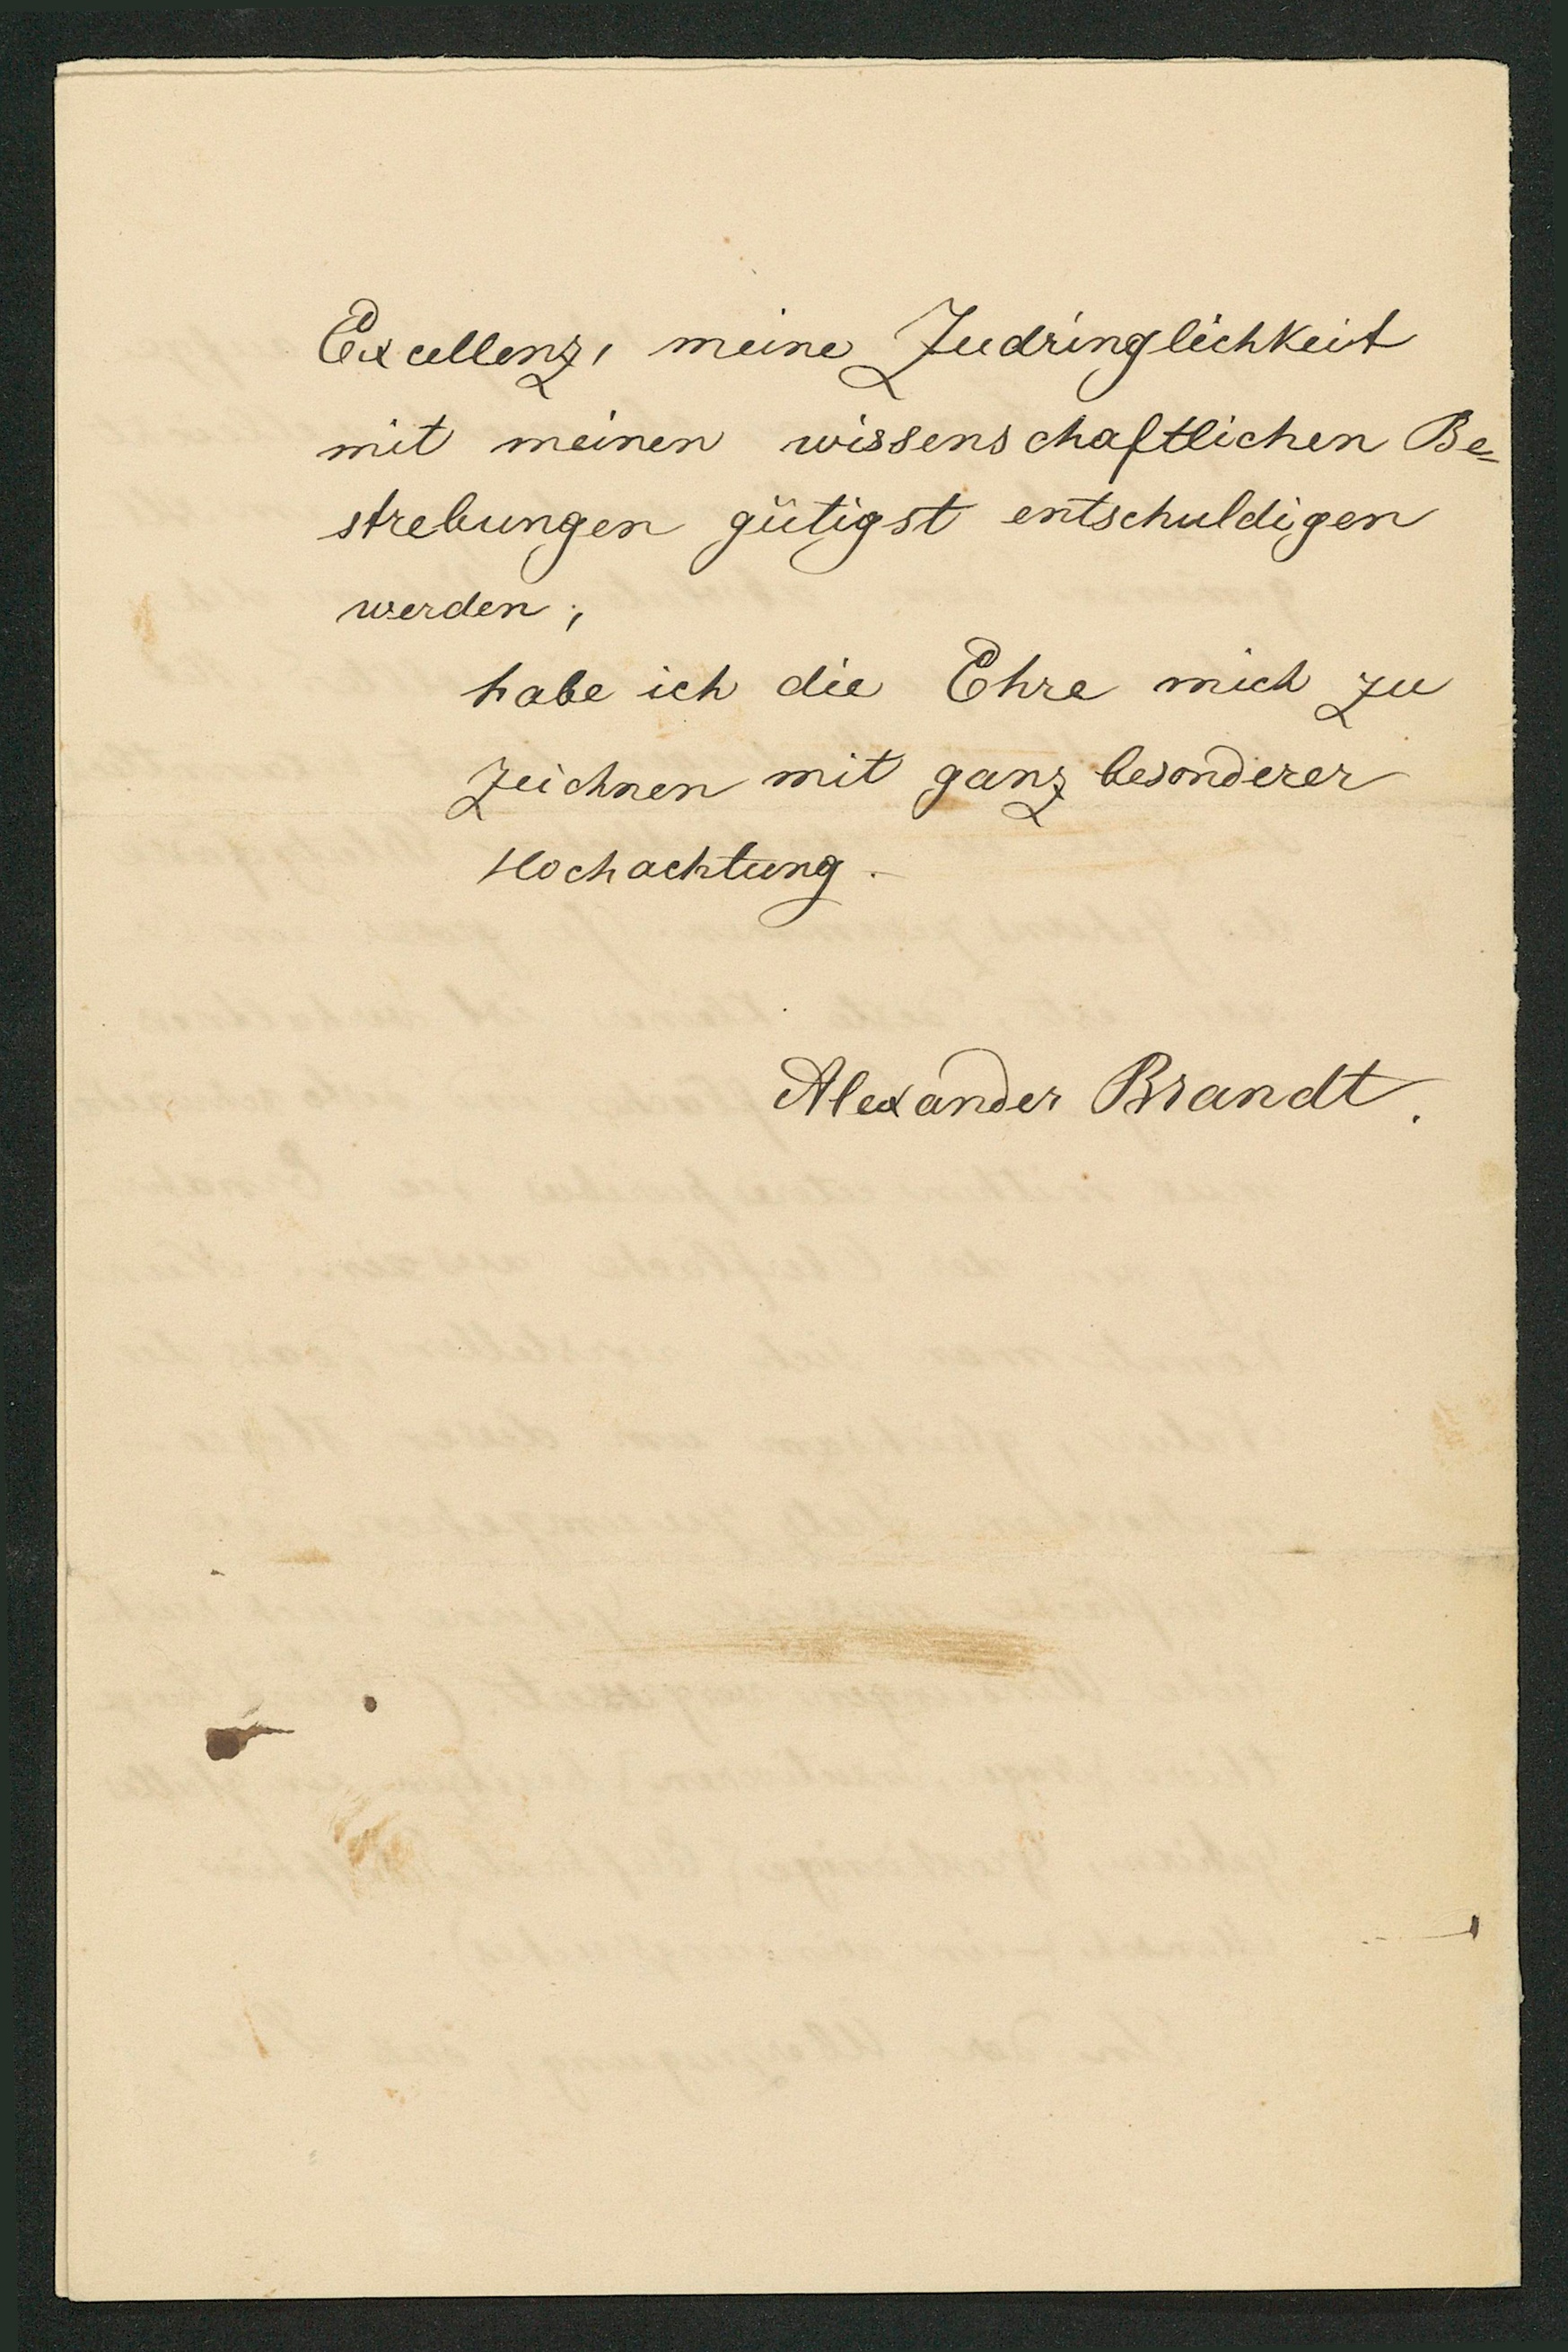 Excellenz, meine Zudringlichkeit
mit meinen wissenschaftlichen Be-
strebungen gütigst entschuldigen
werden,
habe ich die Ehre mich zu
zeichnen mit ganz besonderer
Hochachtung.
Alexander Brandt.